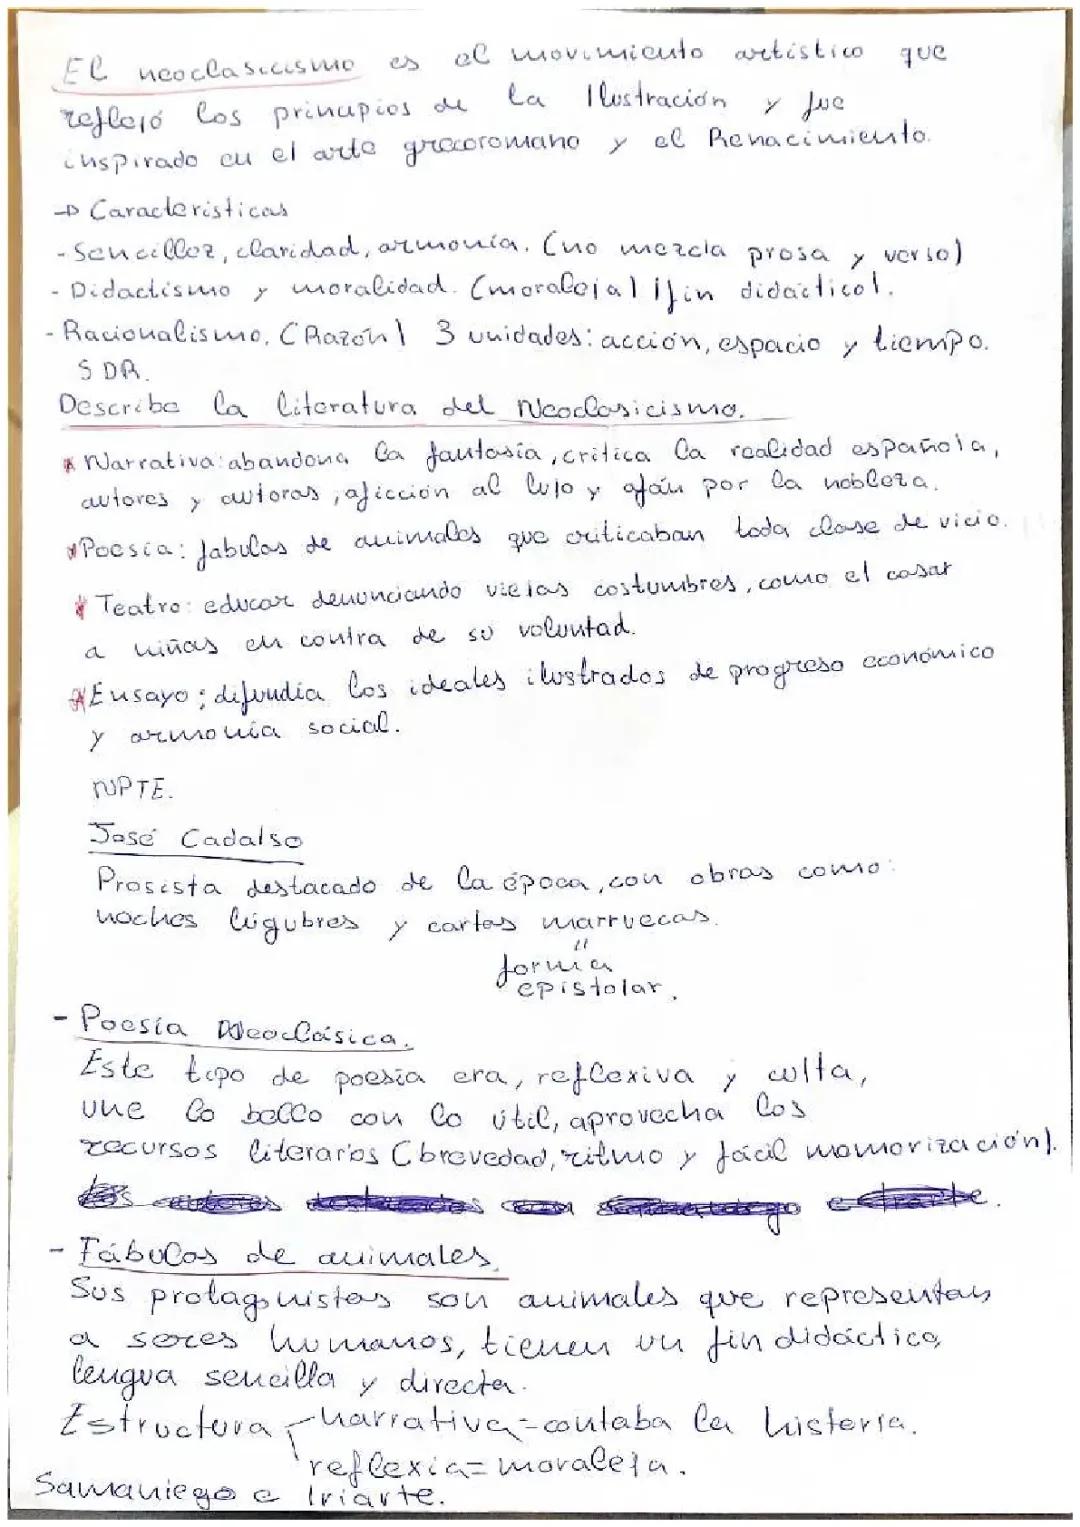 El neoclasicismo es el movimiento artístico que
reflejó los principios de la Ilustración y fue
inspirado en el arte grecoromano y el Renacimiento.
→ Características
- Sencillez, claridad, armonía. (no mezcla prosa y verso)
- Didactismo y moralidad. (moraleja) fin didáctico.
- Racionalismo. (Razón) 3 unidades: acción, espacio y tiempo.
SDR.
Describe la literatura del Neoclasicismo.
* Narrativa: abandona la fantasía, critica la realidad española,
autores y autoras, afición al lujo y afán por la nobleza.
* Poesía: fabulas de animales que criticaban toda clase de vicio.
* Teatro: educar denunciando viejas costumbres, como el casar
a niñas en contra de su voluntad.
* Ensayo: difundia los ideales ilustrados de progreso económico
y armonía social.
NPTE.
José Cadalso
Prosista destacado de la época, con obras como:
noches lúgubres y cartas marruecas.
"
forma
epistolar.
- Poesía Neoclásica.
Este tipo de poesía era, reflexiva y culta,
une lo bello con lo útil, aprovecha los
recursos literarios (brevedad, ritmo y fácil momorización).
- Fábulas de animales.
Sus protagonistas son animales que representan
a seres humanos, tienen un fin didáctico,
lengua sencilla y directa.
Estructura narrativa = contaba la historia.
reflexia = moraleja.
Samaniego e Iriarte.